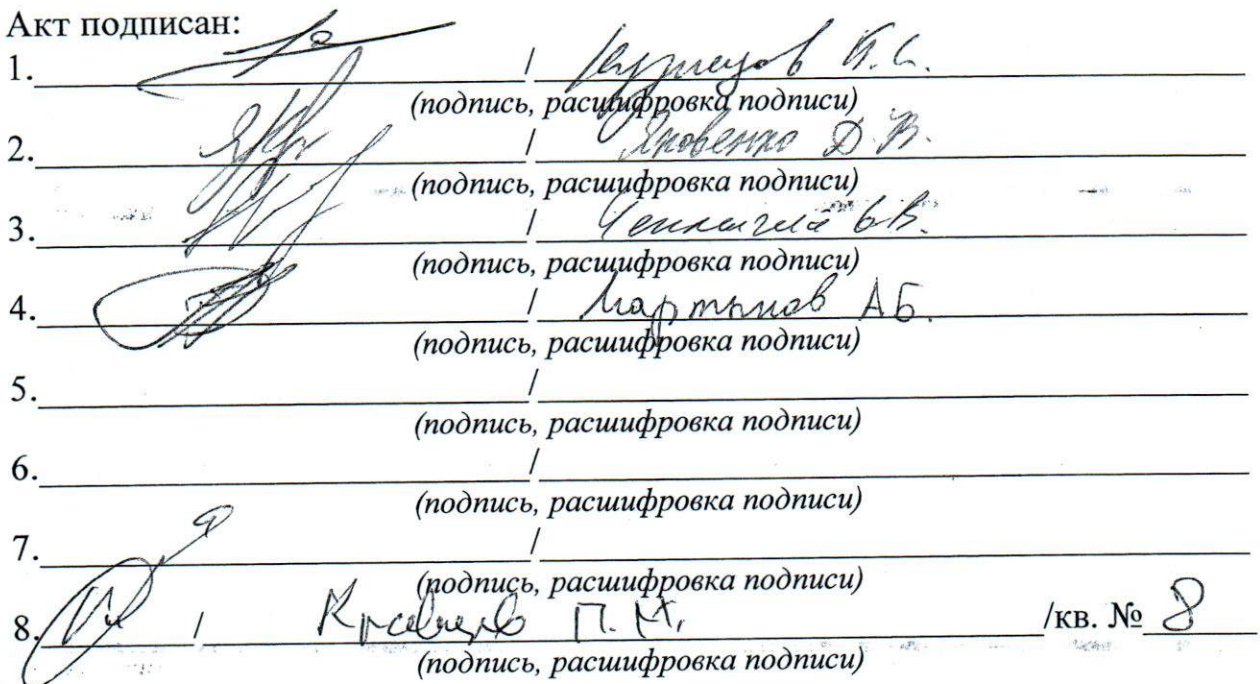 Акт подписан:
1. / Кузнецов К.С.
(подпись, расшифровка подписи)
2. / Яковенко Д.В.
(подпись, расшифровка подписи)
3. /
(подпись, расшифровка подписи)
4. / Мартынов А.Б.
(подпись, расшифровка подписи)
5. /
(подпись, расшифровка подписи)
6. /
(подпись, расшифровка подписи)
7. /
(подпись, расшифровка подписи)
8. / Кравцов П.М. /кв. № 8
(подпись, расшифровка подписи)